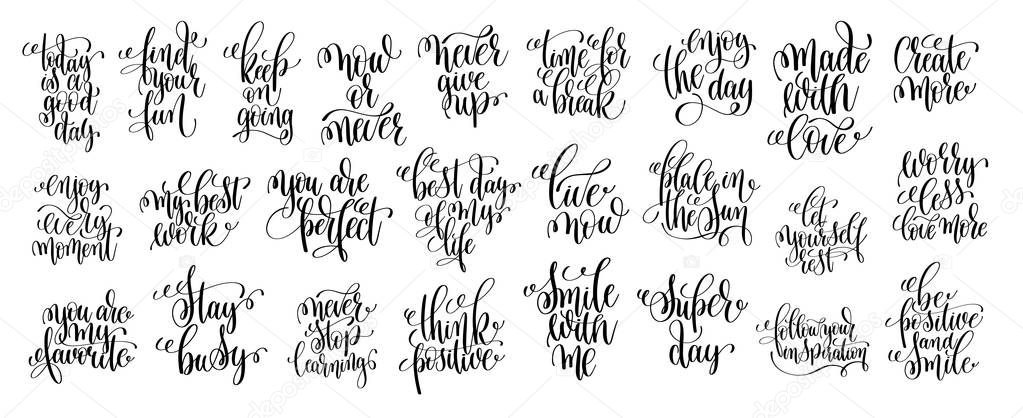 today
is a
good
day
find
your
fun
keep
on
going
now
or
never
never
give
up
time for
a break
enjoy
the day
made
with
love
create
more
enjoy
every
moment
my best
work
you are
perfect
best day
of my
life
live
now
place in
the sun
let
yourself
rest
worry
less
love more
you are
my
favorite
stay
busy
never
stop
learning
think
positive
smile
with
me
super
day
follow your
inspiration
be
positive
and
smile